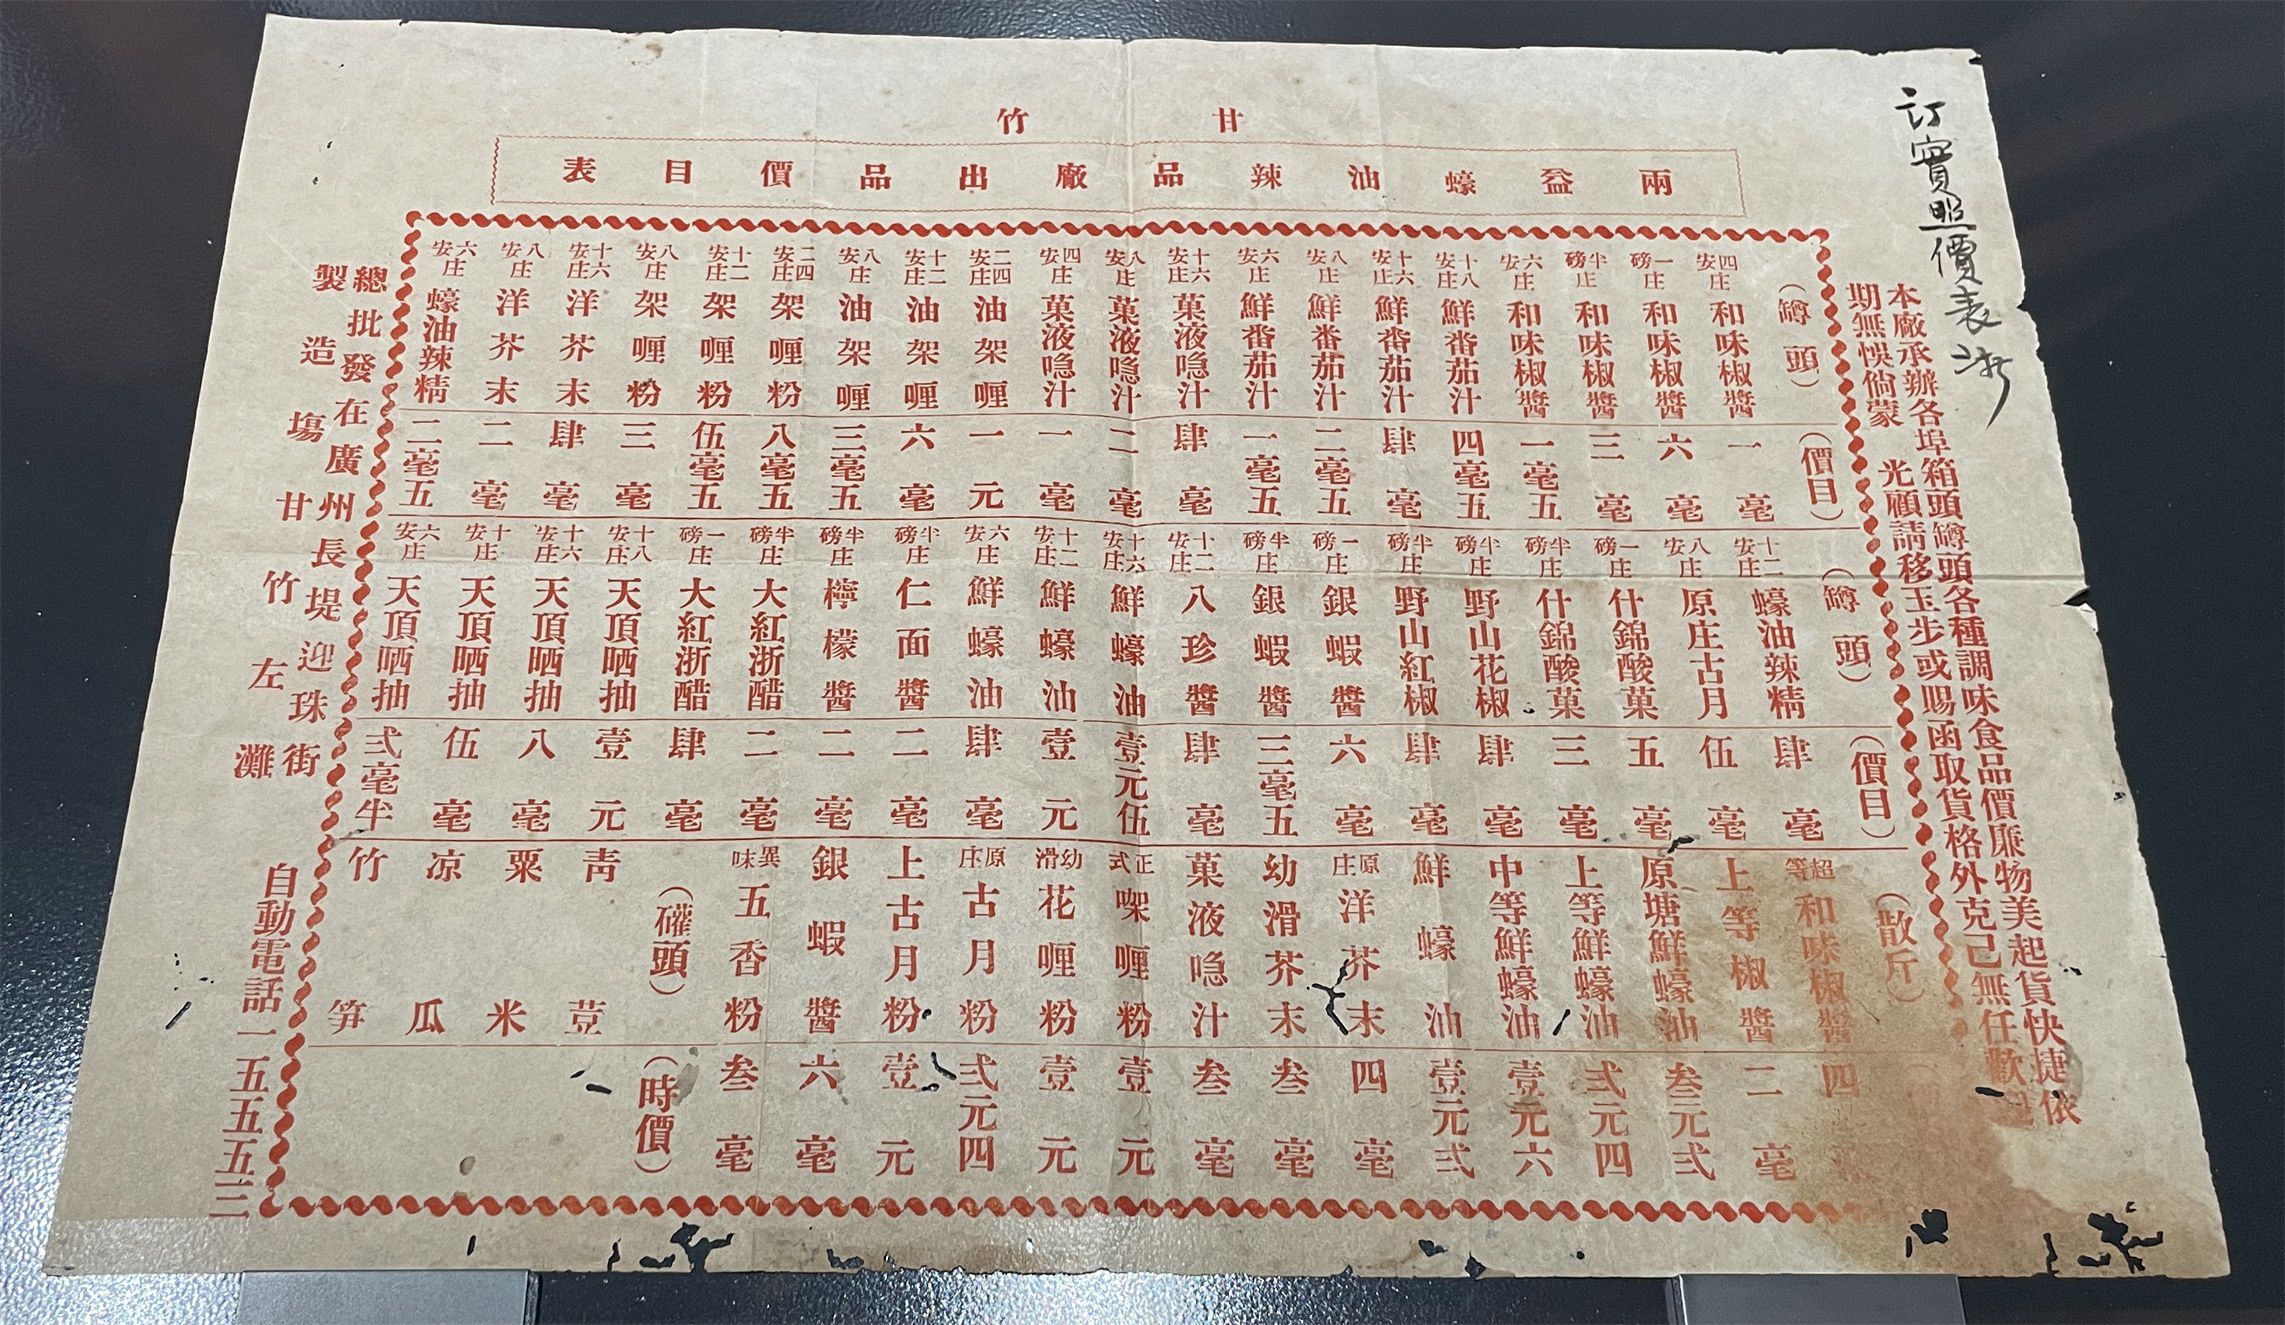 甘竹
兩益蠔油辣品廠出品價目表
訂實照價表
本廠承辦各埠箱頭罇頭各種調味食品價廉物美起貨快捷依
期無悞倘蒙 光顧請移玉步或賜函取貨格外克己無任歡迎
(罇頭) (價目)
四安庄 和味椒醬 一毫
一磅庄 和味椒醬 六毫
半磅庄 和味椒醬 三毫
六安庄 和味椒醬 一毫五
十八安庄 鮮番茄汁 四毫五
十六安庄 鮮番茄汁 肆毫
八安庄 鮮番茄汁 二毫五
六安庄 鮮番茄汁 一毫五
十六安庄 菓液喼汁 肆毫
八安庄 菓液喼汁 二毫
四安庄 菓液喼汁 一毫
二四安庄 油架喱 一元
十二安庄 油架喱 六毫
八安庄 油架喱 三毫五
二四安庄 架喱粉 八毫五
十二安庄 架喱粉 伍毫五
八安庄 架喱粉 三毫
十六安庄 洋芥末 肆毫
八安庄 洋芥末 二毫
六安庄 蠔油辣精 二毫五
(罇頭) (價目)
十二安庄 蠔油辣精 肆毫
八安庄 原庄古月 伍毫
一磅庄 什錦酸菓 五毫
半磅庄 什錦酸菓 三毫
半磅庄 野山花椒 肆毫
半磅庄 野山紅椒 肆毫
一磅庄 銀蝦醬 六毫
半磅庄 銀蝦醬 三毫五
十二安庄 八珍醬 肆毫
十六安庄 鮮蠔油 壹元伍
十二安庄 鮮蠔油 壹元
六安庄 鮮蠔油 肆毫
半磅庄 仁面醬 二毫
半磅庄 檸檬醬 二毫
半磅庄 大紅浙醋 二毫
一磅庄 大紅浙醋 肆毫
十八安庄 天頂晒抽 壹元
十六安庄 天頂晒抽 八毫
十安庄 天頂晒抽 伍毫
六安庄 天頂晒抽 弍毫半
(散斤)
超等和味椒醬 四
上等椒醬 二毫
原塘鮮蠔油 叁元弍
上等鮮蠔油 弍元四
中等鮮蠔油 壹元六
鮮蠔油 壹元弍
原庄洋芥末 四毫
幼滑芥末 叁毫
菓液喼汁 叁毫
正式喍喱粉 壹元
幼滑花喱粉 壹元
原庄古月粉 弍元四
上古月粉 壹元
銀蝦醬 六毫
異味五香粉 叁毫
(礶頭) (時價)
青荳
粟米
凉瓜
竹筍
總批發在廣州長堤迎珠街
製造塲甘竹左灘
自動電話一五五五三